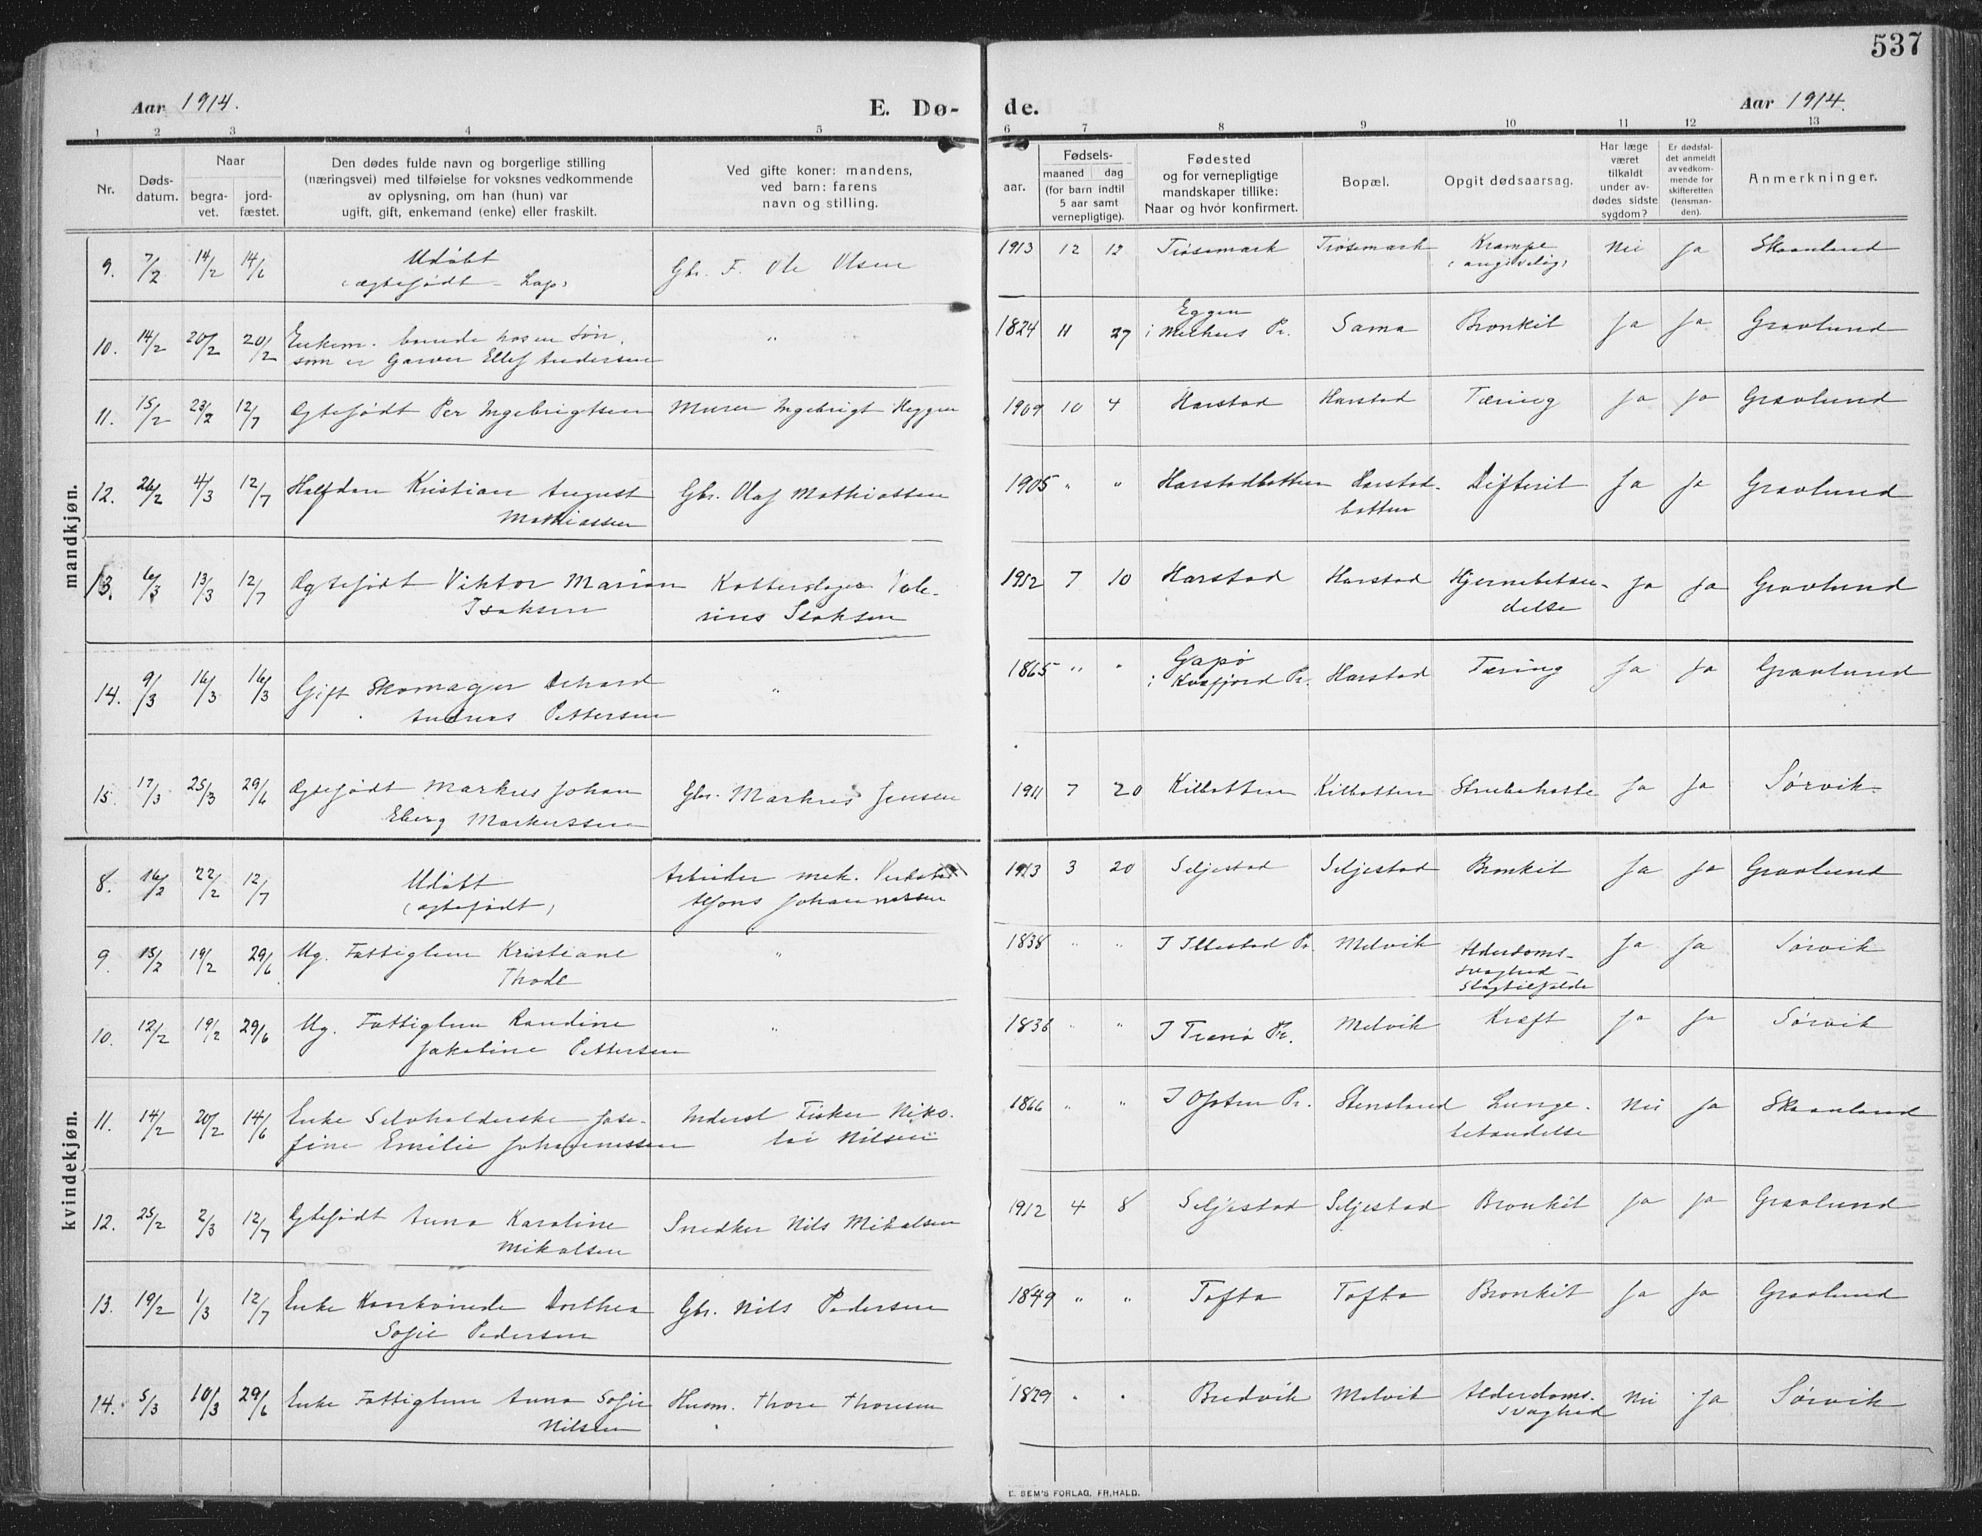 537
Aar 1914.
E. Dø-
de.
Aar 1914.
1 2 3 4 5 6 7 8 9 10 11 12 13
Nr.
Døds-
datum.
Naar
begra-
vet.
jord-
fæstet.
Den dødes fulde navn og borgerlige stilling
(næringsvei) med tilføielse for voksnes vedkommende
av oplysning, om han (hun) var
ugift, gift, enkemand (enke) eller fraskilt.
Ved gifte koner: mandens,
ved barn: farens
navn og stilling.
Fødsels-
aar.
maaned dag
(for barn indtil
5 aar samt
vernepligtige).
Fødested
og for vernepligtige
mandskaper tillike:
Naar og hvor konfirmert.
Bopæl.
Opgit dødsaarsag.
Har læge
været
tilkaldt
under av-
dødes sidste
sygdom?
Er dødsfal-
det anmeldt
av vedkom-
mende for
skifteretten
(lensman-
den).
Anmerkninger.
mandkjøn.
9. 7/2 14/2 14/6 Udøbt Gbr. F. Ole Olsen 1913 12 12 Trøsemark Trøsemark Krampe Nei Ja Skaanland
(ægtefødt - Lap) (angivelig)
10. 14/2 20/2 20/2 Enkem. boende hos en søn, " 1824 11 27 Eggen Sama Bronkit Ja Ja Gravlund
som er Garver Ellef Andersen i Melhus Pr.
11. 15/2 23/2 12/7 Ægtefødt Per Ingebrigtsen Murer Ingebrigt Heggen 1909 10 4 Harstad Harstad Tæring Ja Ja Gravlund
12. 26/2 4/3 12/7 Halfdan Kristian August Gbr. Olaf Mathiassen 1905 " " Harstadbotten Harstad- Difterit Ja Ja Gravlund
Mathiassen botten
13. 6/3 13/3 12/7 Ægtefødt Viktor Marion 1912 7 10 Harstad Harstad Hjernebetæn- Ja Ja Gravlund
Isaksen Isaksen delse
14. 9/3 16/3 16/3 Gift Skomager Dehard " 1865 " " Gapø Harstad Tæring Ja Ja Gravlund
Andreas Pettersen i Kvæfjord Pr.
15. 17/3 25/3 29/6 Ægtefødt Markus Johan Gbr. Markus Jensen 1911 7 20 Kilbotten Kilbotten Strubehoste Ja Ja Sørvik
Eberg Markussen
kvindekjøn.
8. 16/2 22/2 12/7 Udøbt Arbeider mek. Verksted 1913 3 20 Seljestad Seljestad Bronkit Ja Ja Gravlund
(ægtefødt) Alfons Johannessen
9. 15/2 19/2 29/6 Ug. Fattiglem Kristiane " 1838 " " I Melvik Alderdoms- Ja Ja Sørvik
Thode svaghed -
Slagtilfælde
10. 12/2 19/2 29/6 Ug. Fattiglem Randine " 1836 " " I Tranø Pr. Melvik Kræft Ja Ja Sørvik
Jakobine Pettersen
11. 14/2 20/2 14/6 Enke Selvholderske Jose- Inderst Fisker Niko- 1866 " " I Ofoten Pr. Stensland Lunge- Nei Ja Skaanland
fine Emilie Johannessen lai Nilsen betændelse
12. 25/2 2/3 12/7 Ægtefødt Anna Karoline Snedker Nils Mikalsen 1912 4 8 Seljestad Seljestad Bronkit Ja Ja Gravlund
Mikalsen
13. 19/2 1/3 12/7 Enke Kaarkvinde Dorthea Gbr. Nils Pedersen 1849 " " Tofta Tofta Bronkit Ja Ja Gravlund
Sofie Pedersen
14. 5/3 10/3 29/6 Enke Fattiglem Anna Sofie Husm. Thore Thoresen 1829 " " Bredvik Melvik Alderdoms- Nei Ja Sørvik
Nilsen svaghed
E. SEM'S FORLAG, FR.HALD.